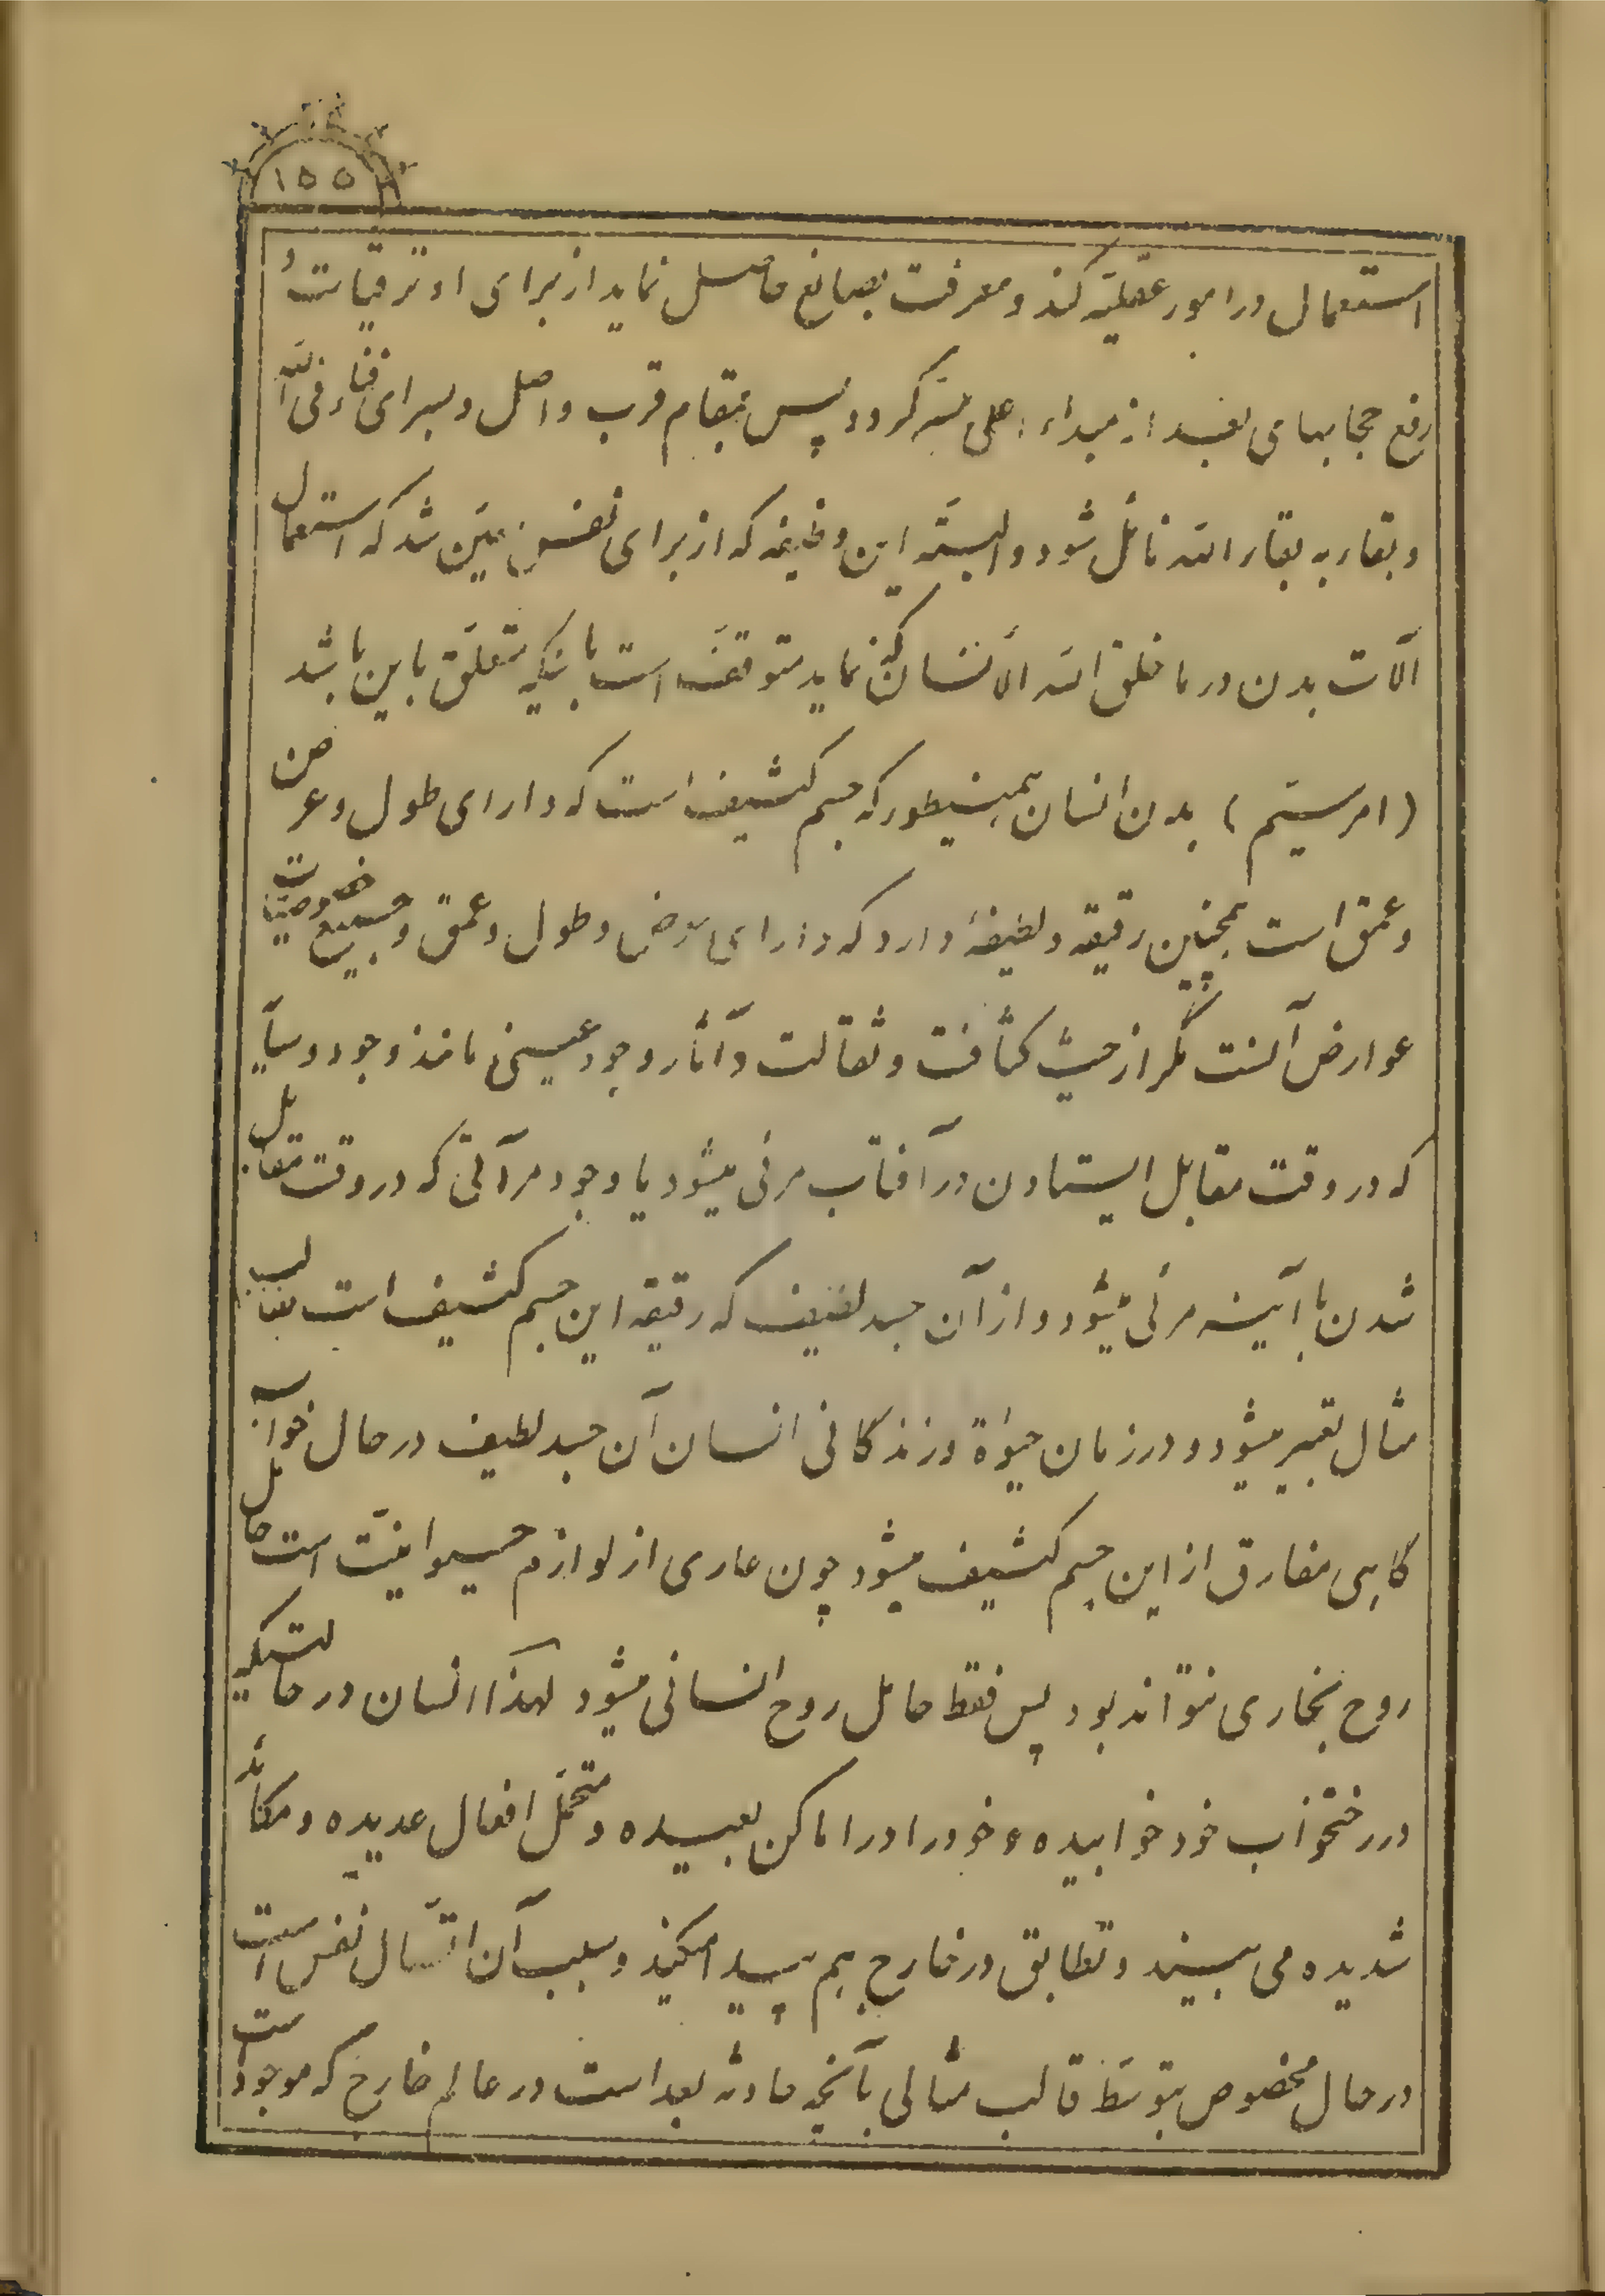 ۱۵۵
استعمال در امور عقلیّه کند و معرفت بصانع حاصل نماید از برای او ترقیات و
رفع حجابهای بعید از مبداء اعلی میّسر گردد پس بمقام قرب واصل و بسرای فناء فی الله
و بقاء به بقاء الله نائل شود و البتّه این وظیفه که از برای نفس معیّن شد که استعمال
آلات بدن در ما خلق الله الأنسان کنند نماید متوقف است باینکه متعلّق باین باشد
(امر سیّم) بدن انسان همینطور که جسم کثیف است که دارای طول و عرض
و عمق است همچنین رقیقه و لطیفهٔ دارد که دارای عرض و طول و عمق و جمیع خصوصیات
عوارض آنست مگر از حیث کثافت و ثقالت و آثار وجود عینی مانند وجود سیایه
که در وقت مقابل ایستادن در آفتاب مرئی میشود یا وجود مرآتی که در وقت مقابل
شدن با آیینه مرئی میشود و از آن جسد لطیف که رقیقه این جسم کثیف است بقالب
مثال تعبیر میشود و در زمان حیوة و زندگانی انسان آن جسد لطیف در حال خواب
گاهی مفارق از این جسم کثیف میشود چون عاری از لوازم حیوانیّت است حامل
روح بخاری نتواند بود پس فقط حامل روح انسانی میشود لهذا انسان در حالتیکه
در رختخواب خود خوابیده خود را در اماکن بعیده و متحمّل افعال عدیده و مکائد
شدیده می بیند و تطابق در خارج هم پیدا میکند و سبب آن اتّصال نفس است
در حال مخصوص بتوسّط قالب مثالی بآنچه حادثه بعد است در عالم خارج که موجود است